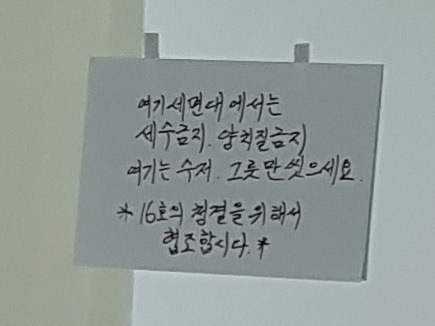 여기세면대에서는
세수금지. 양치질금지
여기는 수저. 그릇만 씻으세요.
* 16호의 청결을 위해서
협조합시다. *